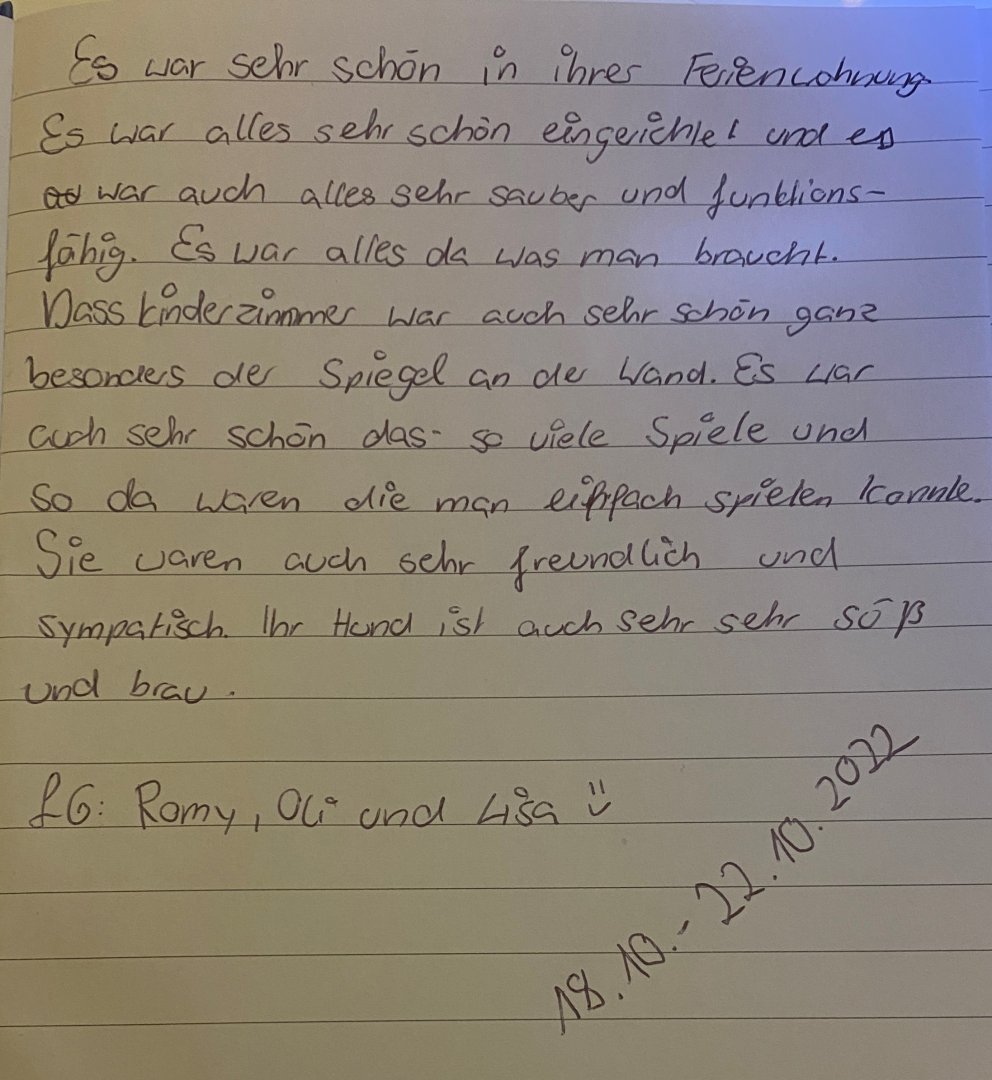 Es war sehr schön in ihrer Ferienwohnung
Es war alles sehr schön eingerichtet und es
war auch alles sehr sauber und funktions-
fähig. Es war alles da was man braucht.
Dass Kinderzimmer war auch sehr schön ganz
besonders der Spiegel an der Wand. Es war
auch sehr schön das so viele Spiele und
so da waren die man einfach spielen konnte.
Sie waren auch sehr freundlich und
sympatisch. Ihr Hund ist auch sehr sehr süß
und brav.
LG: Romy, Oli und Lisa :)
18.10.-22.10.2022